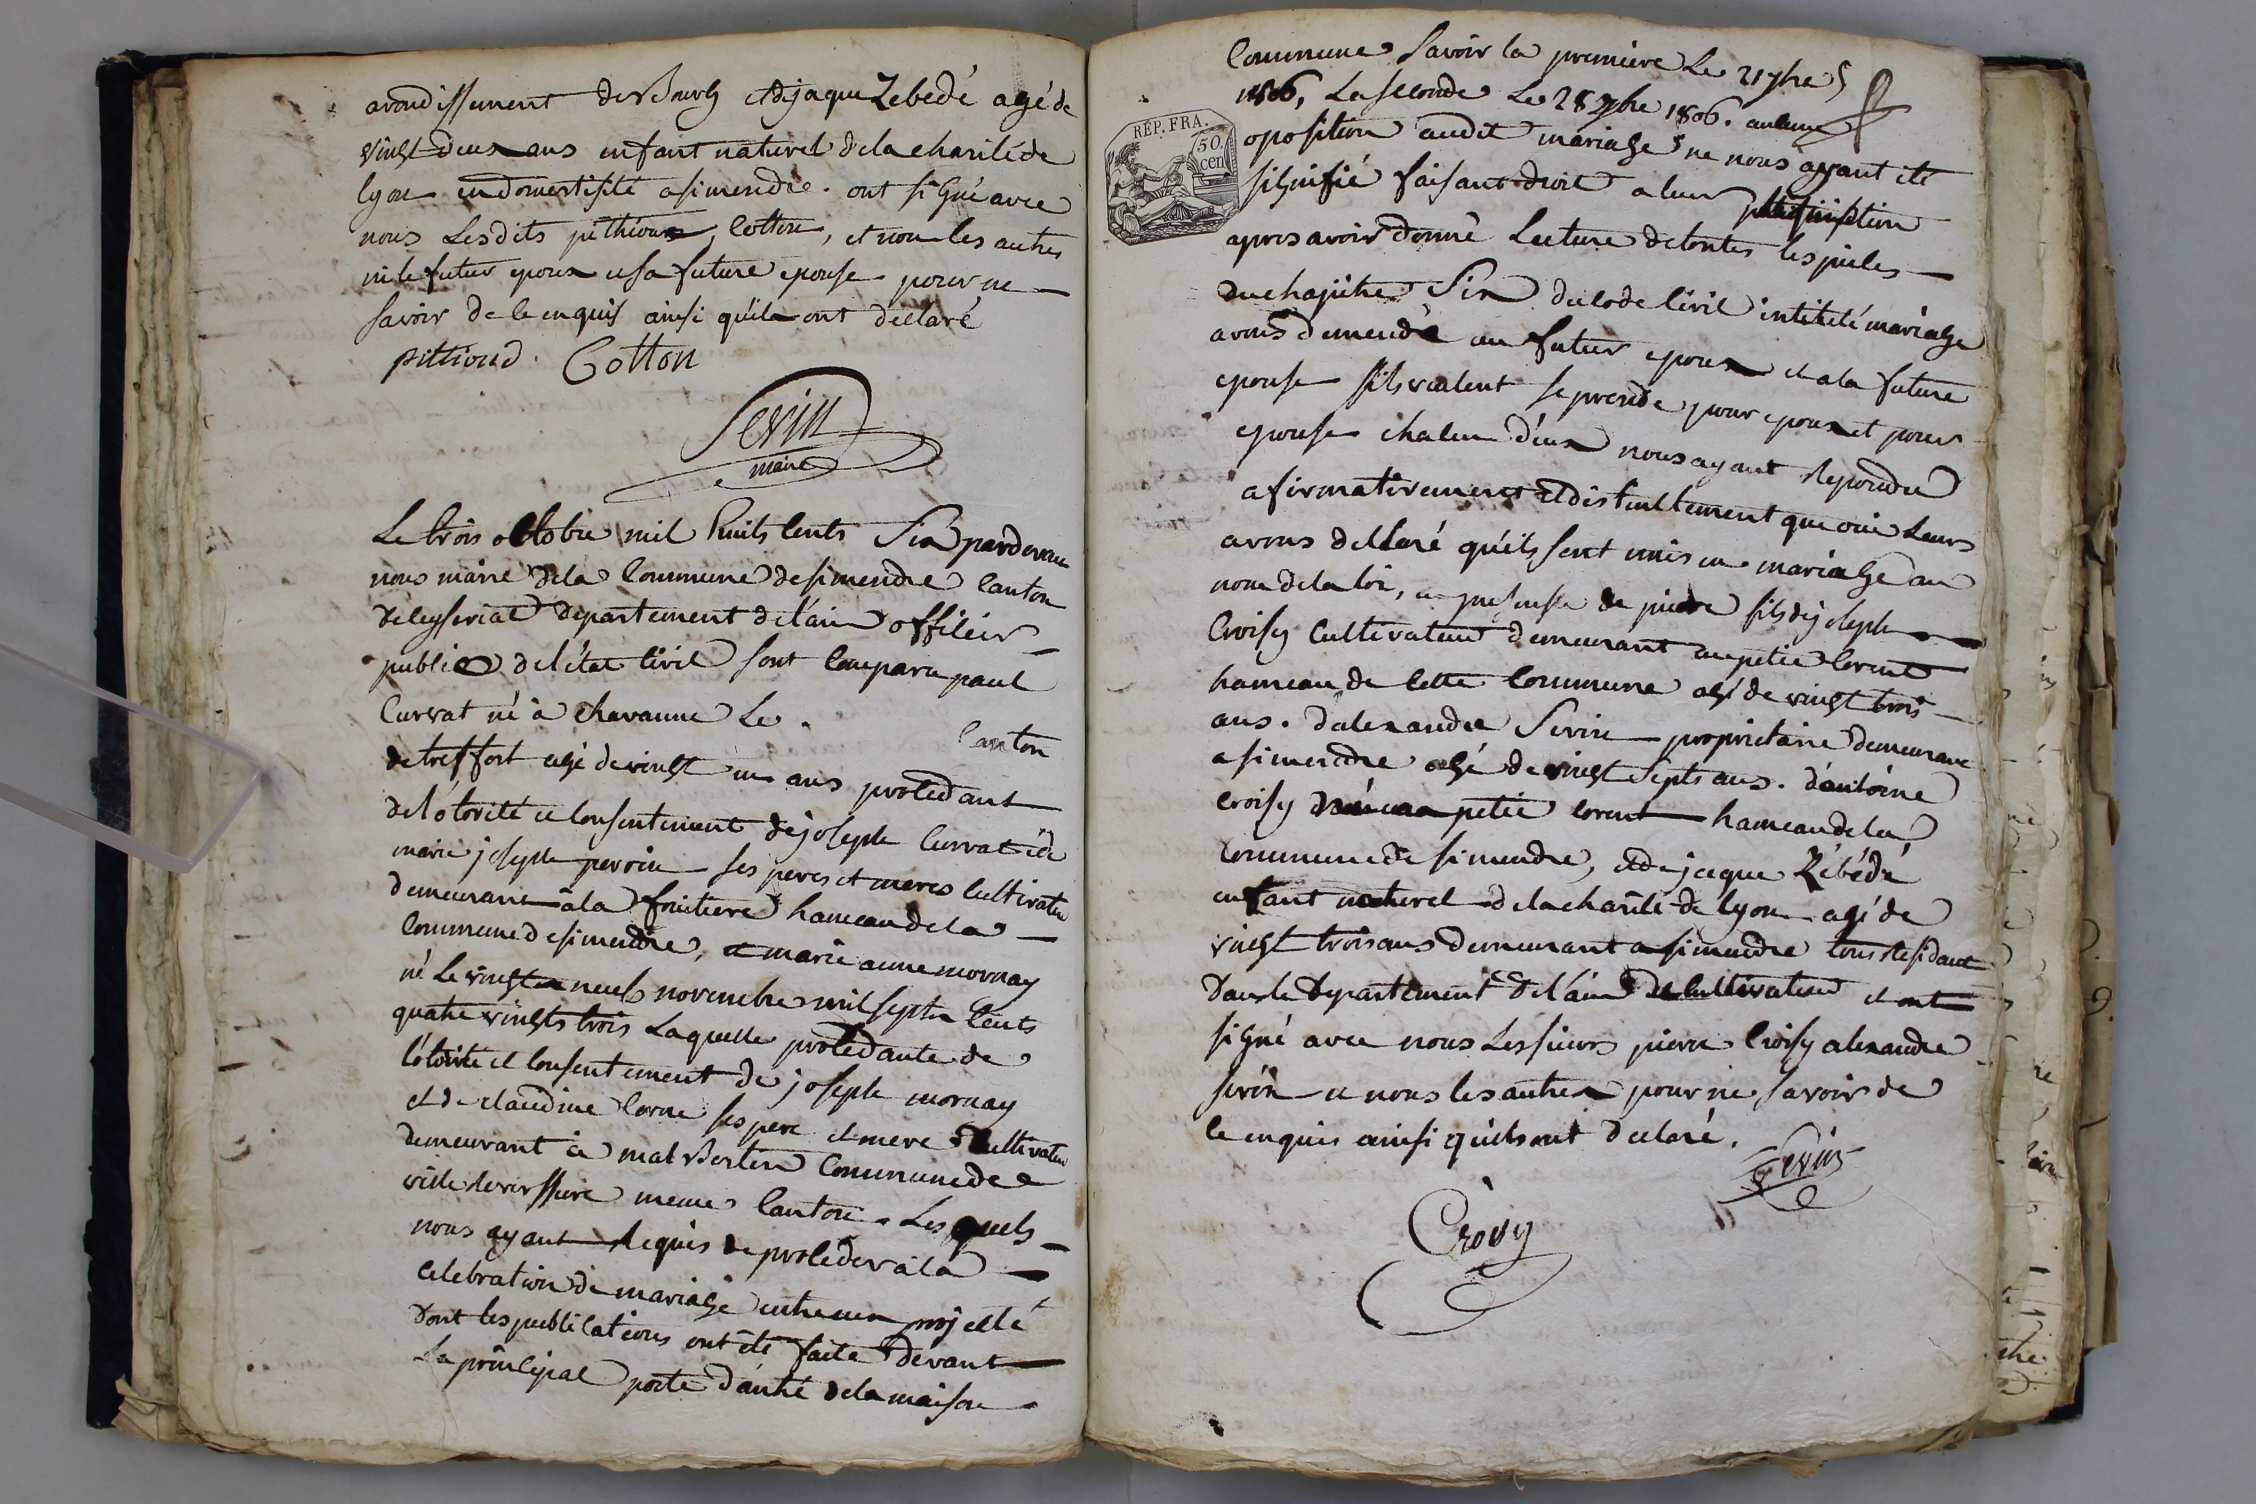 arondissement de Bourg et dejaque Zebedé agé de
vingt deux ans enfant naturel de la charité de
lyon en domestisité a simendre. ont signé avec
nous Lesdits pithioux, Cotton, et non les autres
ni le futur epoux et sa future epouse pour ne
savoir de ce enquis ainsi quils ont declaré
pittioud. Cotton
Sevin
maire
Le trois octobre mil huits cents Six pardevan
nous maire de la Commune de simendre Canton
de Ceyseriat departement de l'ain officier
public de l'état Civil sont Comparu paul
Curvat né à Chavanne Le . Canton
de treffort agé de vingt un ans procedant
de l'otorité et Consentement de joseph Curvat et de
marie joseph perrin ses peres et meres Cultivateu
demeurant à la fruitiere hameau de la
Commune de simendre, et marie anne mornay
né Le vingt neuf novembre mil septs Cents
quatre vingts trois Laquelle procedante de
l'otorité et Consentement de joseph mornay
et de claudine Corne ses pere et mere Cultivateu
demeurant à mal Bertin Commune de
ville reverssure meme Canton. Lesquels
nous ayant Requis de proceder à la
celebration de mariage entre eux projetté
dont les publications ont été faite devant
La principal porte d'antré de la maison
Commune Savoir la premiere Le 21 7bre
1806, La seconde Le 28 7bre 1806. aucune
oposition audit mariage ne nous ayant été
signifié faisant droit a leur
RÉP. FRA.
50 cen
apres avoir donné Lecture de toutes les pieces
du chapitre Six du Code Civil intitulé mariage
avons demendé au futur epoux et a la future
epouse s'ils veulent se prendre pour epoux et pour
epouse chacun d'eux nous ayant Repondu
afirmativement et distinctement que oui Leurs
avons declaré qu'ils sont unis en mariage au
nom de la loi, en presense de pierre fils de joseph
Croisy Cultivateur demeurant au petit Corent
hameau de Cette Commune agé de vingt trois
ans. d'alexandre Sevin proprietaire demeurant
a simendre agé de vingt septs ans. d'antoine
Croisy petit Corent hameau de la
Commune de simendre, et de jaque Zébédé
enfant naturel de la charité de lyon agé de
vingt trois ans demeurant a simendre tous Residant
dans le Departement de l'ain Cultivateur et ont
signé avec nous Les sieurs pierre Croisy alexandre
sevin et nous les autres pour ne savoir de
Ce enquis ainsi quils ont declaré.
Sevin
Croisy